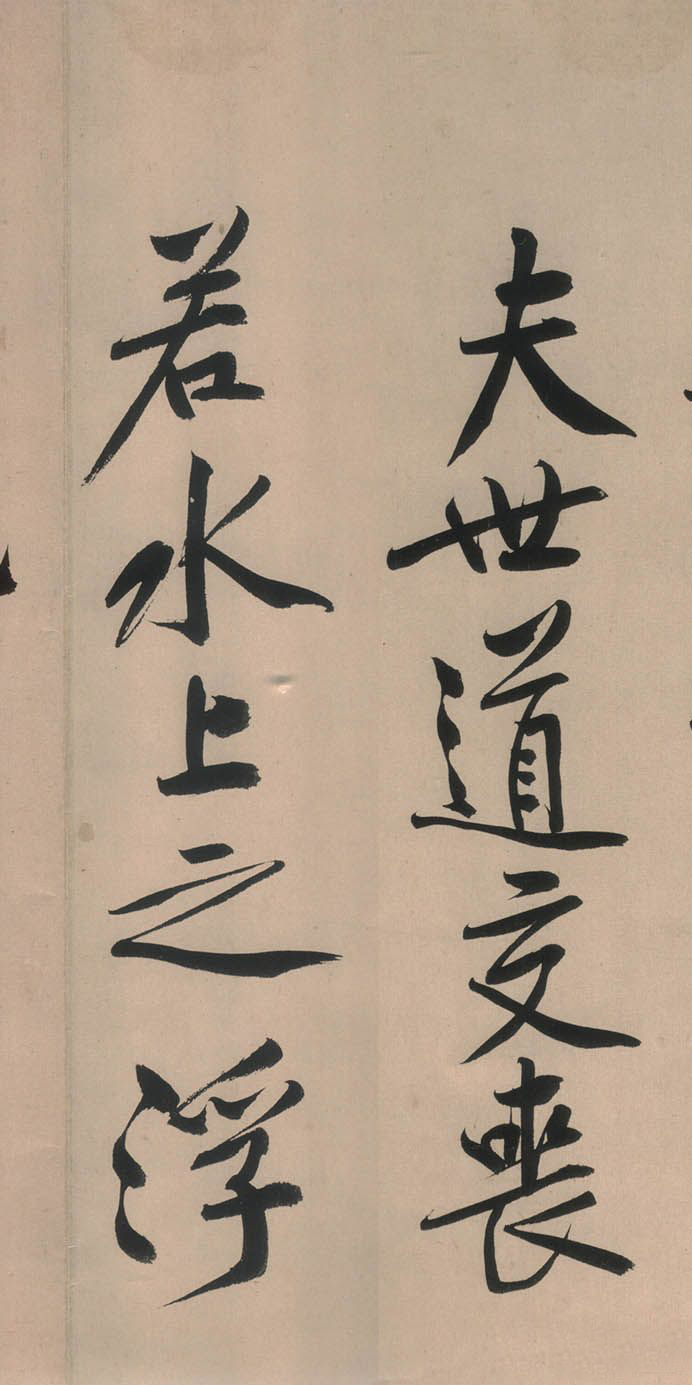 夫世道交喪
若水上之浮